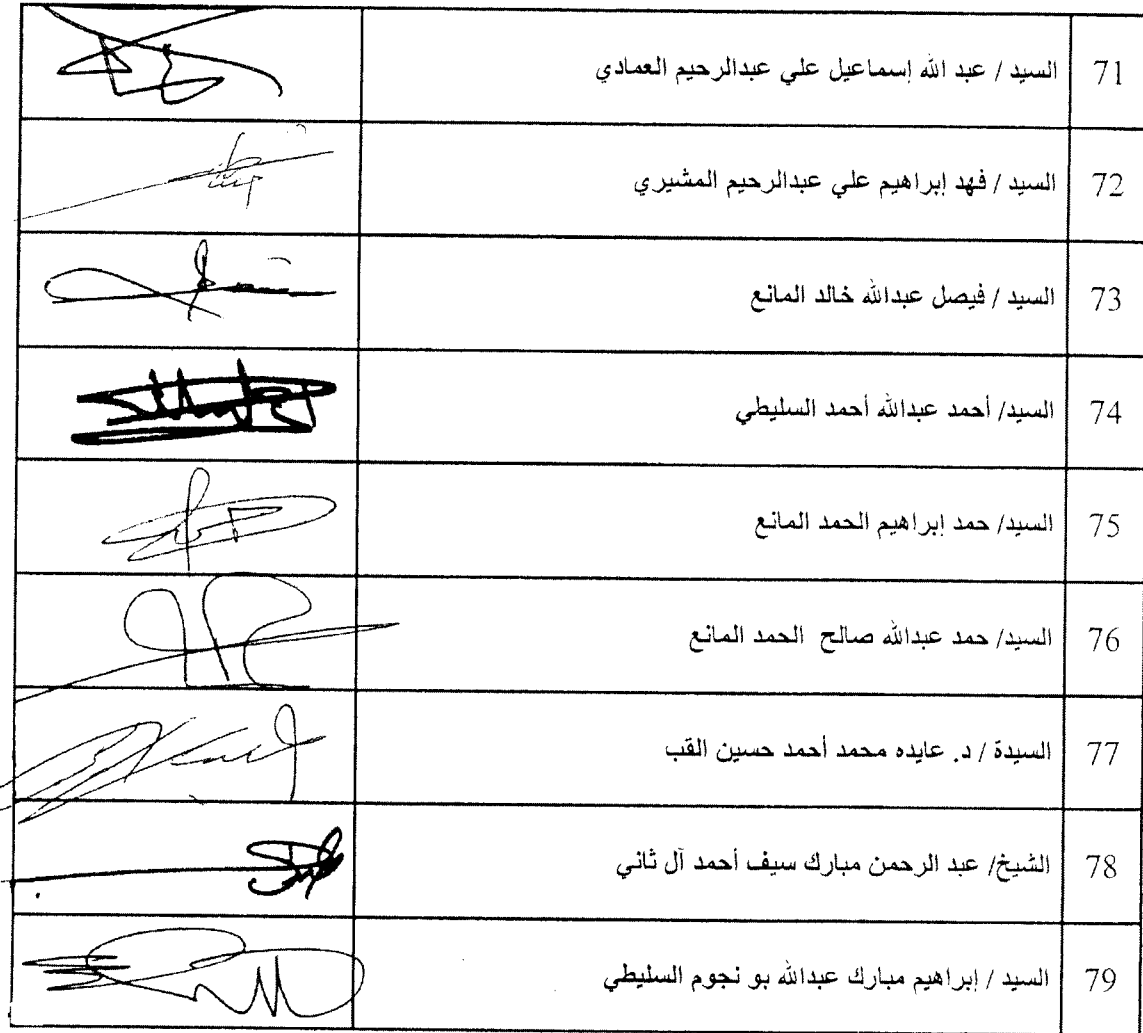 71 السيد / عبد الله إسماعيل علي عبدالرحيم العمادي
72 السيد / فهد إبراهيم علي عبدالرحيم المشيري
73 السيد / فيصل عبدالله خالد المانع
74 السيد/ أحمد عبدالله أحمد السليطي
75 السيد/ حمد إبراهيم الحمد المانع
76 السيد/ حمد عبدالله صالح الحمد المانع
77 السيدة / د. عايده محمد أحمد حسين القب
78 الشيخ/ عبد الرحمن مبارك سيف أحمد آل ثاني
79 السيد / إبراهيم مبارك عبدالله بو نجوم السليطي